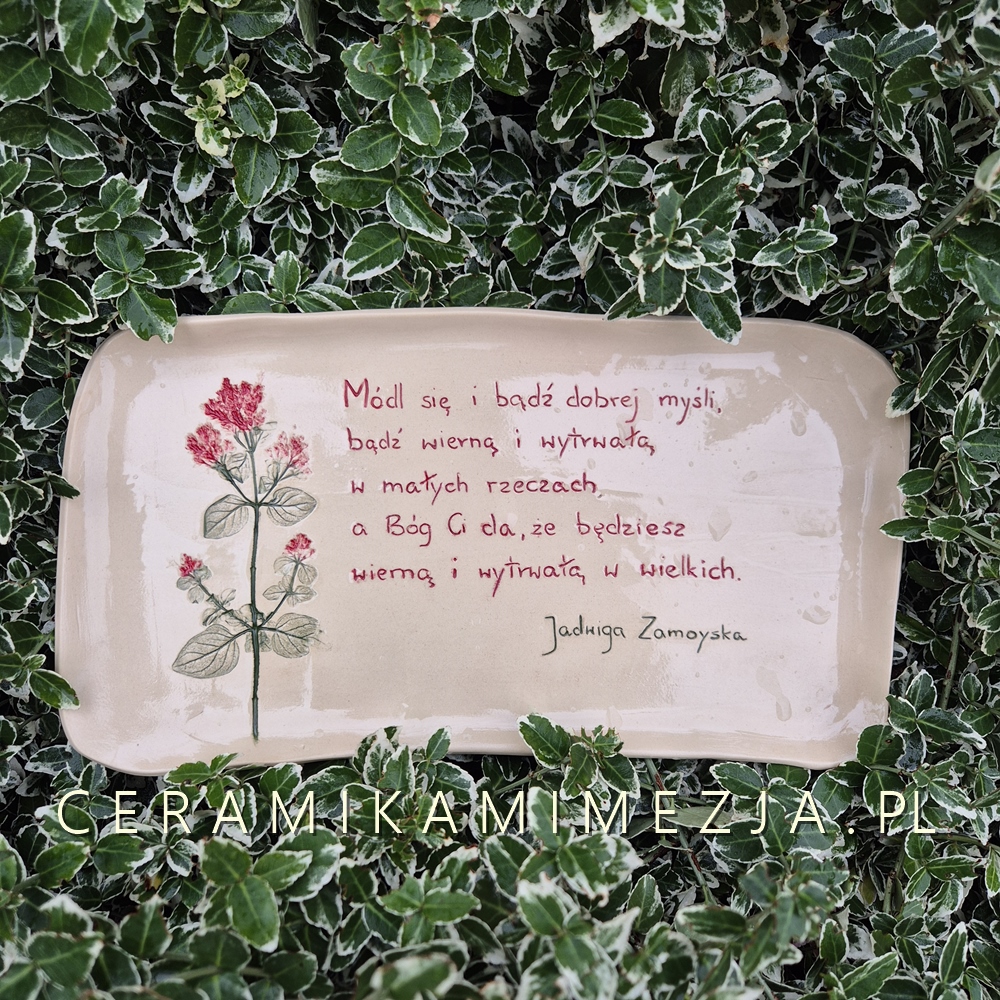 Módl się i bądź dobrej myśli,
bądź wierną i wytrwałą
w małych rzeczach,
a Bóg Ci da, że będziesz
wierną i wytrwałą w wielkich.
Jadwiga Zamoyska
CERAMIKAMIMEZJA.PL